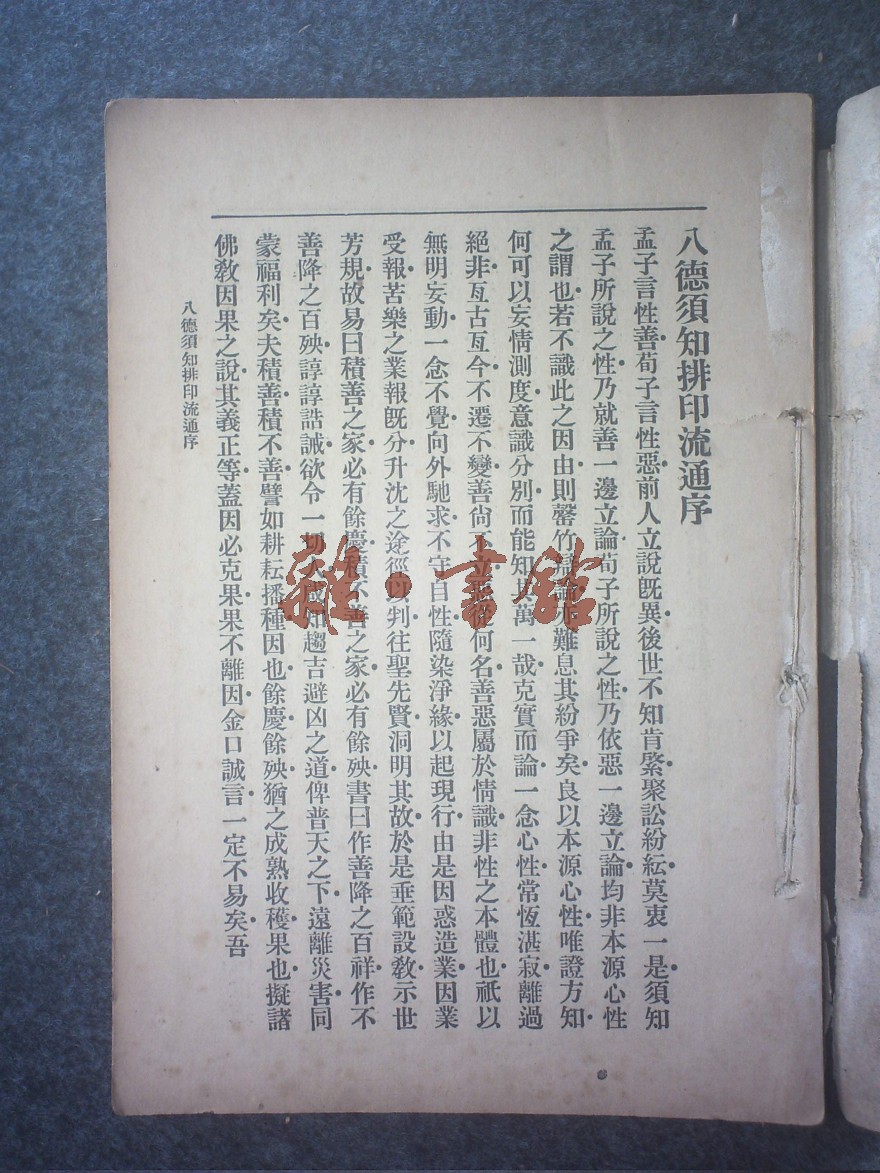 八德須知排印流通序
孟子言性善荀子言性惡前人立說既異後世不知肯綮聚訟紛紜莫衷一是須知
孟子所說之性乃就善一邊立論荀子所說之性乃依惡一邊立論均非本源心性
之謂也若不識此之因由則罄竹難息其紛爭矣良以本源心性唯證方知
何可以妄情測度意識分別而能知其萬一哉克實而論一念心性常恆湛寂離過
絕非亙古亙今不遷不變善尚不立惡從何名善惡屬於情識非性之本體也祇以
無明妄動一念不覺向外馳求不守自性隨染淨緣以起現行由是因惑造業因業
受報苦樂之業報既分升沈之途徑以判往聖先賢洞明其故於是垂範設教示世
芳規故易曰積善之家必有餘慶積不善之家必有餘殃書曰作善降之百祥作不
善降之百殃諄諄誥誡欲令一切人咸知趨吉避凶之道俾普天之下遠離災害同
蒙福利矣夫積善積不善譬如耕耘播種因也餘慶餘殃猶之成熟收穫果也擬諸
佛教因果之說其義正等蓋因必克果果不離因金口誠言一定不易矣吾
八德須知排印流通序
雜·書館